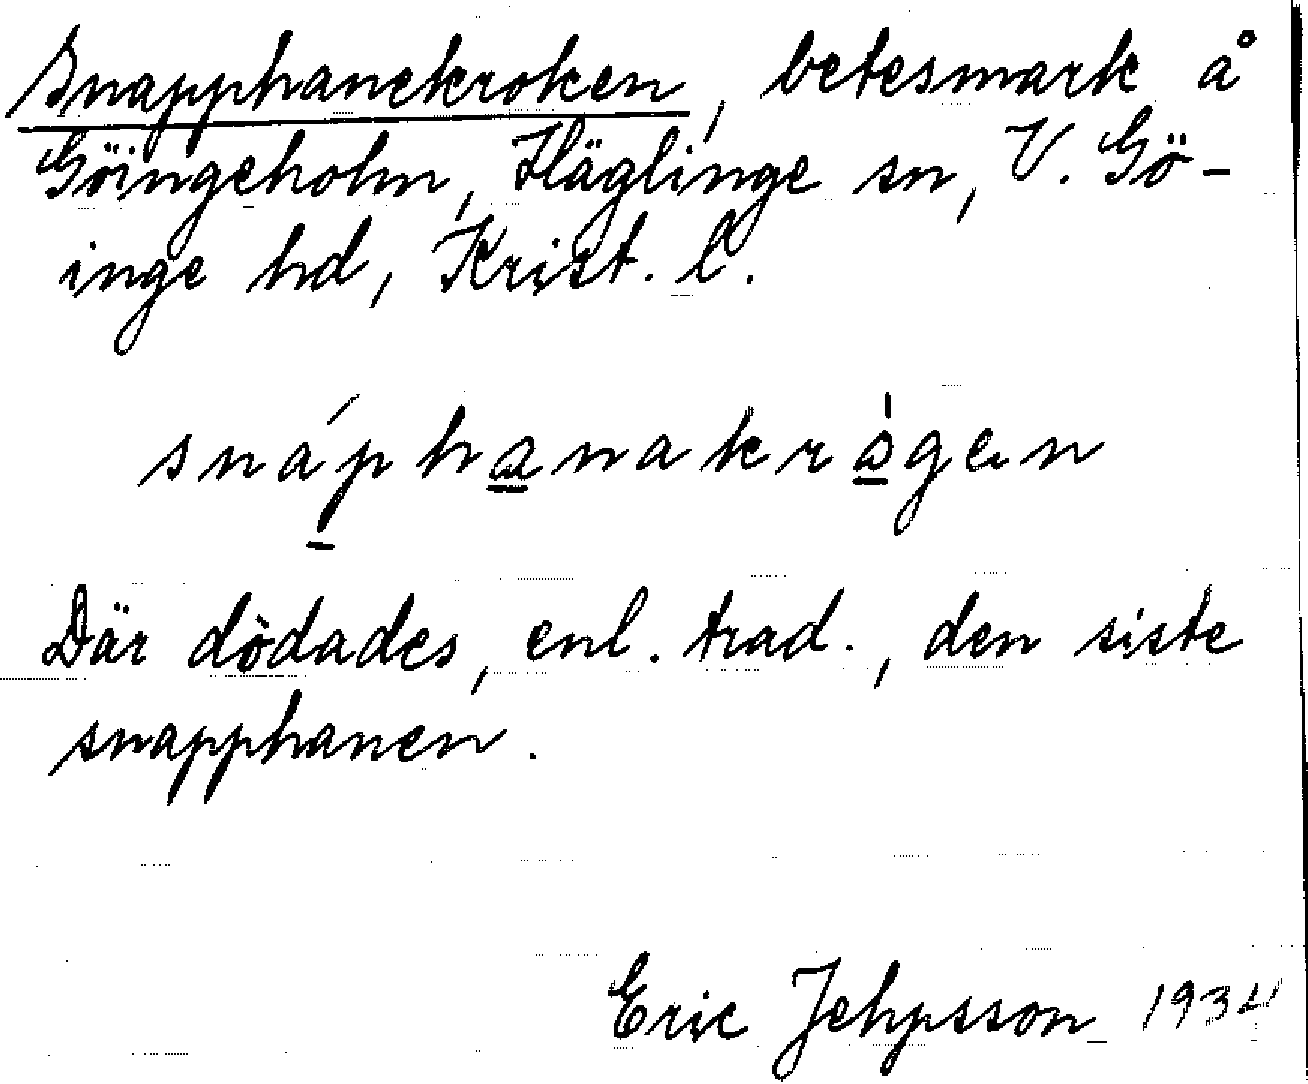 Snapphanekroken, betesmark å
Göingeholm, Häglinge sn, V. Gö-
inge hd, Krist. l.
snáphanakrågen
Där dödades, enl. trad., den siste
snapphanen.
Eric Jehpsson 1934